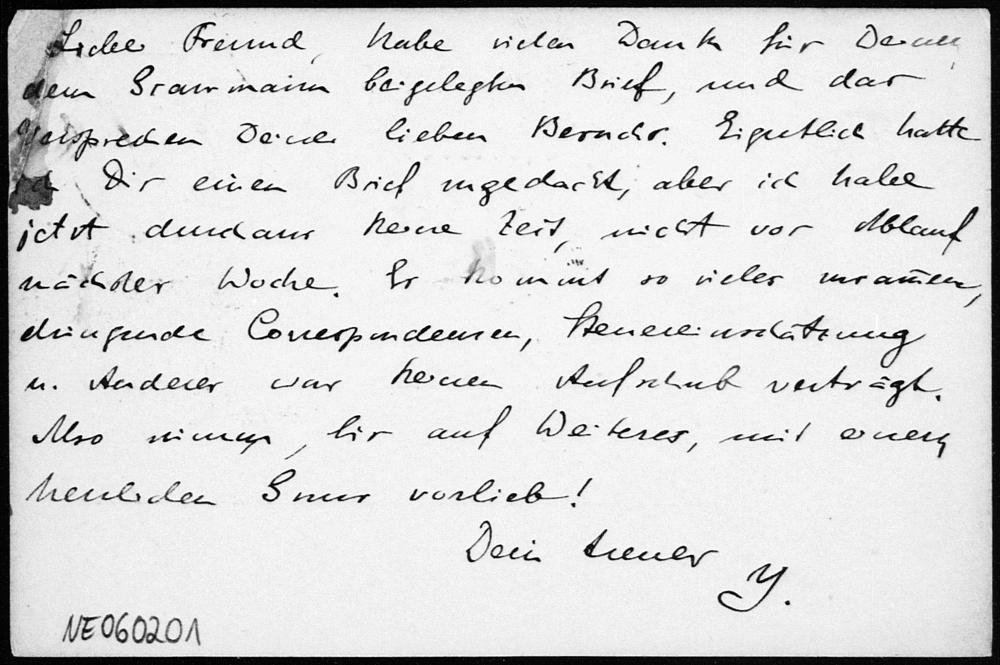 Lieber Freund, habe vielen Dank für Deinen,
dem Grammann beigelegten Brief, und das
Versprechen Deines lieben Besuchs. Eigentlich hatte
ich Dir einen Brief zugedacht, aber ich habe
jetzt durchaus keine Zeit, nicht vor Ablauf
nächster Woche. Es kommt so vieles zusam̅en,
dringende Correspondenzen, Steuereinschätzung
u. Anderes was keinen Aufschub verträgt.
Also nimm, bis auf Weiteres, mit einem
herzlichen Gruss vorlieb!
Dein treuer
Y.
NE060201